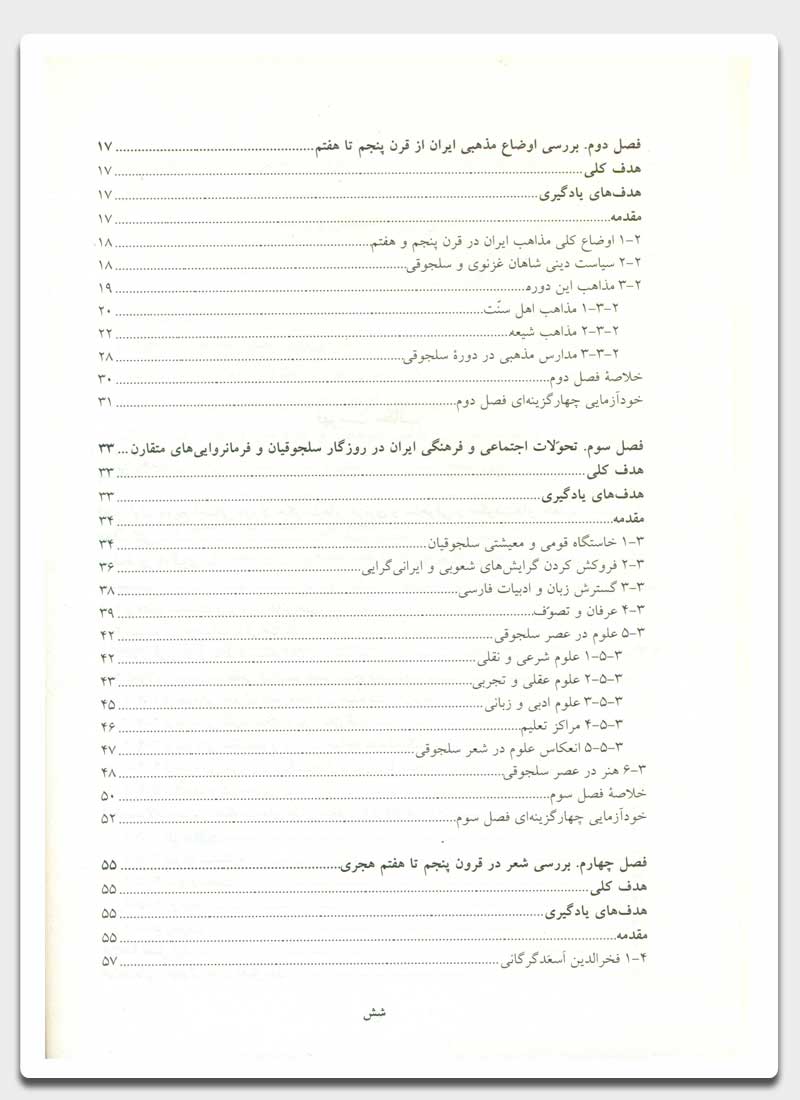 فصل دوم. بررسی اوضاع مذهبی ایران از قرن پنجم تا هفتم ... ۱۷
هدف کلی ... ۱۷
هدف‌های یادگیری ... ۱۷
مقدمه ... ۱۷
۲-۱ اوضاع کلی مذاهب ایران در قرن پنجم و هفتم ... ۱۸
۲-۲ سیاست دینی شاهان غزنوی و سلجوقی ... ۱۸
۲-۳ مذاهب این دوره ... ۱۹
۲-۳-۱ مذاهب اهل سنّت ... ۲۰
۲-۳-۲ مذاهب شیعه ... ۲۲
۲-۳-۳ مدارس مذهبی در دورهٔ سلجوقی ... ۲۸
خلاصهٔ فصل دوم ... ۳۰
خودآزمایی چهارگزینه‌ای فصل دوم ... ۳۱
فصل سوم. تحوّلات اجتماعی و فرهنگی ایران در روزگار سلجوقیان و فرمانروایی‌های متقارن ... ۳۳
هدف کلی ... ۳۳
هدف‌های یادگیری ... ۳۳
مقدمه ... ۳۴
۳-۱ خاستگاه قومی و معیشتی سلجوقیان ... ۳۴
۳-۲ فروکش کردن گرایش‌های شعوبی و ایرانی‌گرایی ... ۳۶
۳-۳ گسترش زبان و ادبیات فارسی ... ۳۸
۳-۴ عرفان و تصوّف ... ۳۹
۳-۵ علوم در عصر سلجوقی ... ۴۲
۳-۵-۱ علوم شرعی و نقلی ... ۴۲
۳-۵-۲ علوم عقلی و تجربی ... ۴۳
۳-۵-۳ علوم ادبی و زبانی ... ۴۵
۳-۵-۴ مراکز تعلیم ... ۴۶
۳-۵-۵ انعکاس علوم در شعر سلجوقی ... ۴۷
۳-۶ هنر در عصر سلجوقی ... ۴۸
خلاصهٔ فصل سوم ... ۵۰
خودآزمایی چهارگزینه‌ای فصل سوم ... ۵۲
فصل چهارم. بررسی شعر در قرون پنجم تا هفتم هجری ... ۵۵
هدف کلی ... ۵۵
هدف‌های یادگیری ... ۵۵
مقدمه ... ۵۵
۴-۱ فخرالدین اَسعَدگرگانی ... ۵۷
شش